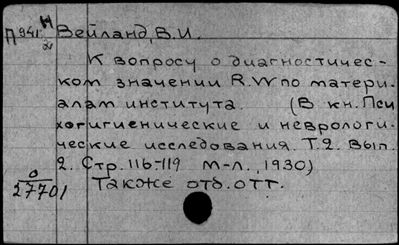 П941 н Вейланд, В.И.
К вопросу о диагностичес-
ком значении R.W по матери-
алам института. (В кн. Пси
хогигиенические и неврологи-
ческие исследования. Т.2. Вып.
2. Стр. 116-119 М-Л., 1930)
0
27701 Также отд. отт.